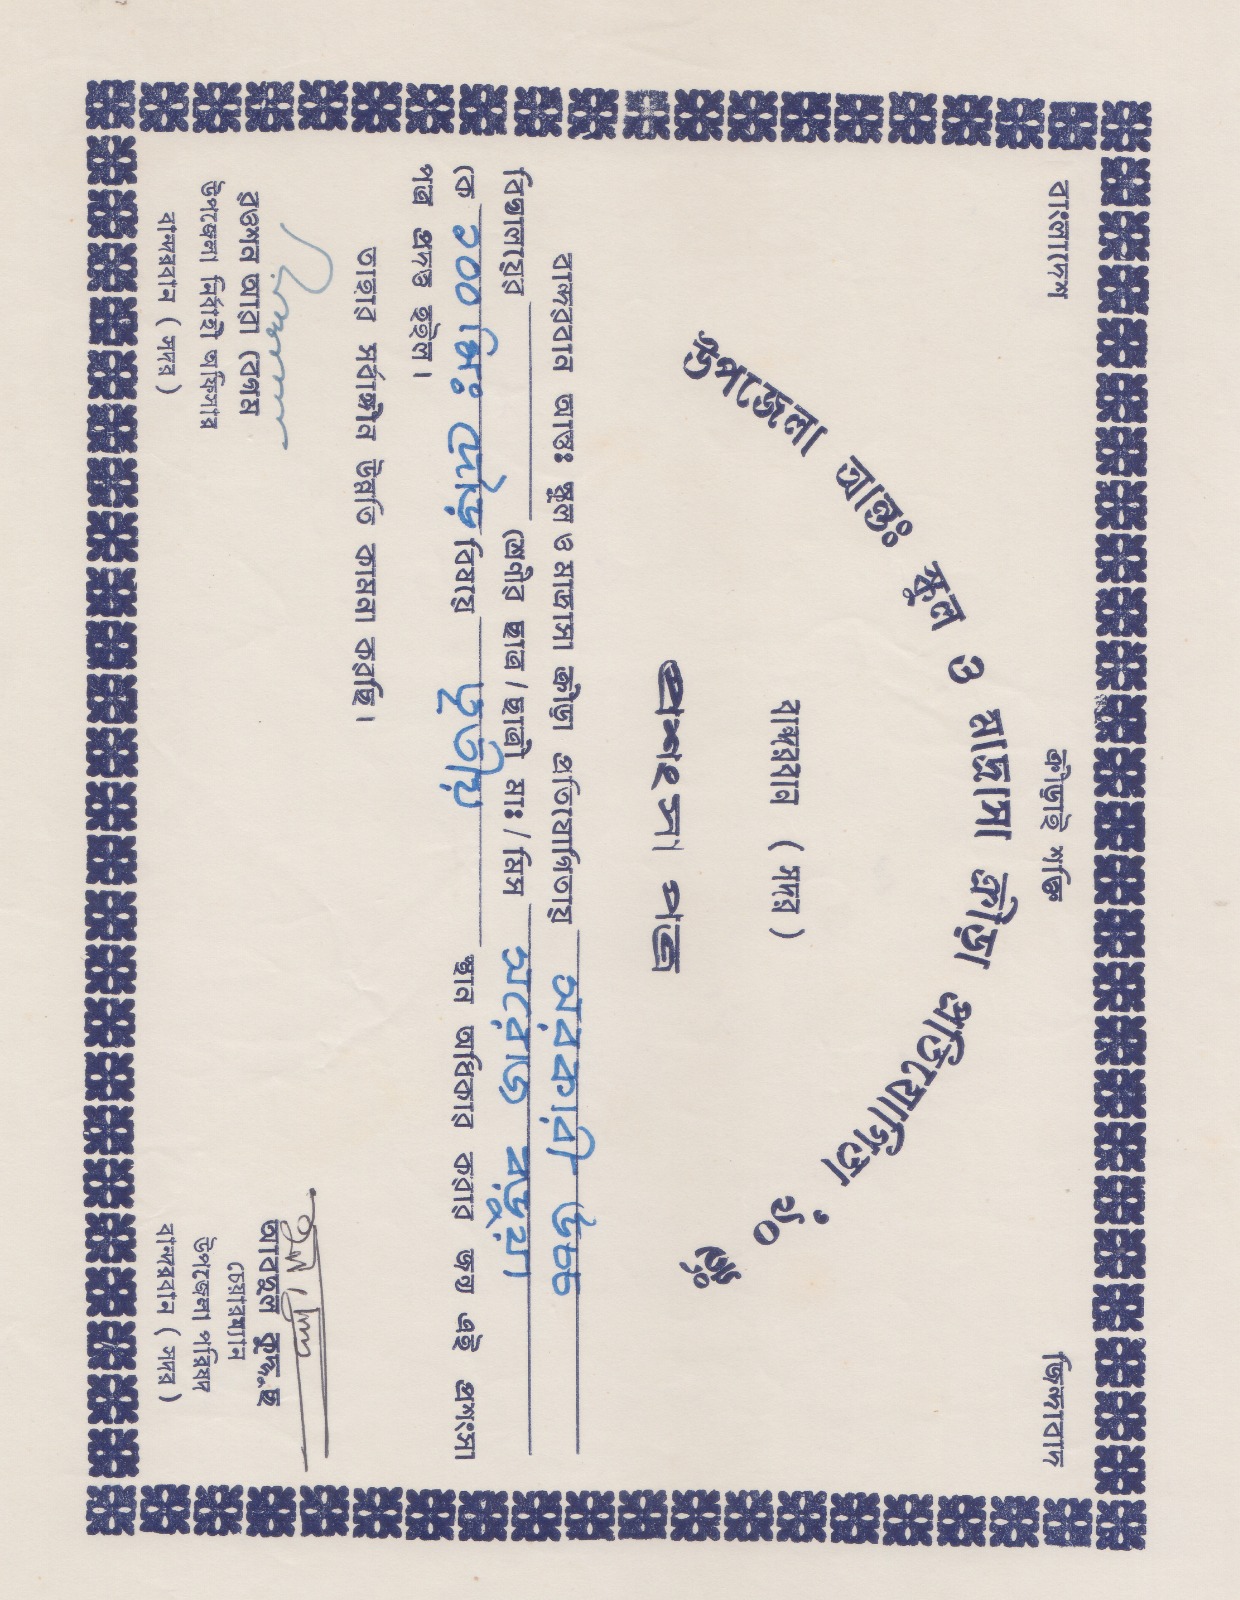 বাংলাদেশ ক্রীড়াই শক্তি জিন্দাবাদ
উপজেলা আন্তঃ স্কুল ও মাদ্রাসা ক্রীড়া প্রতিযোগিতা '৯০ ইং
বান্দরবান ( সদর )
প্রশংসা পত্র
বান্দরবান আন্তঃ স্কুল ও মাদ্রাসা ক্রীড়া প্রতিযোগিতায় সরকারী উচ্চ
বিদ্যালয়ের শ্রেণীর ছাত্র / ছাত্রী মাঃ / মিস সরোজ বড়ুয়া
কে ১০০ মিঃ দৌড় বিষয়ে তৃতীয় স্থান অধিকার করার জন্য এই প্রশংসা
পত্র প্রদত্ত হইল।
তাহার সর্বাঙ্গীন উন্নতি কামনা করছি।
রওশন আরা বেগম
উপজেলা নির্বাহী অফিসার
বান্দরবান ( সদর )
আবদুল কুদ্দুছ
চেয়ারম্যান
উপজেলা পরিষদ
বান্দরবান ( সদর )